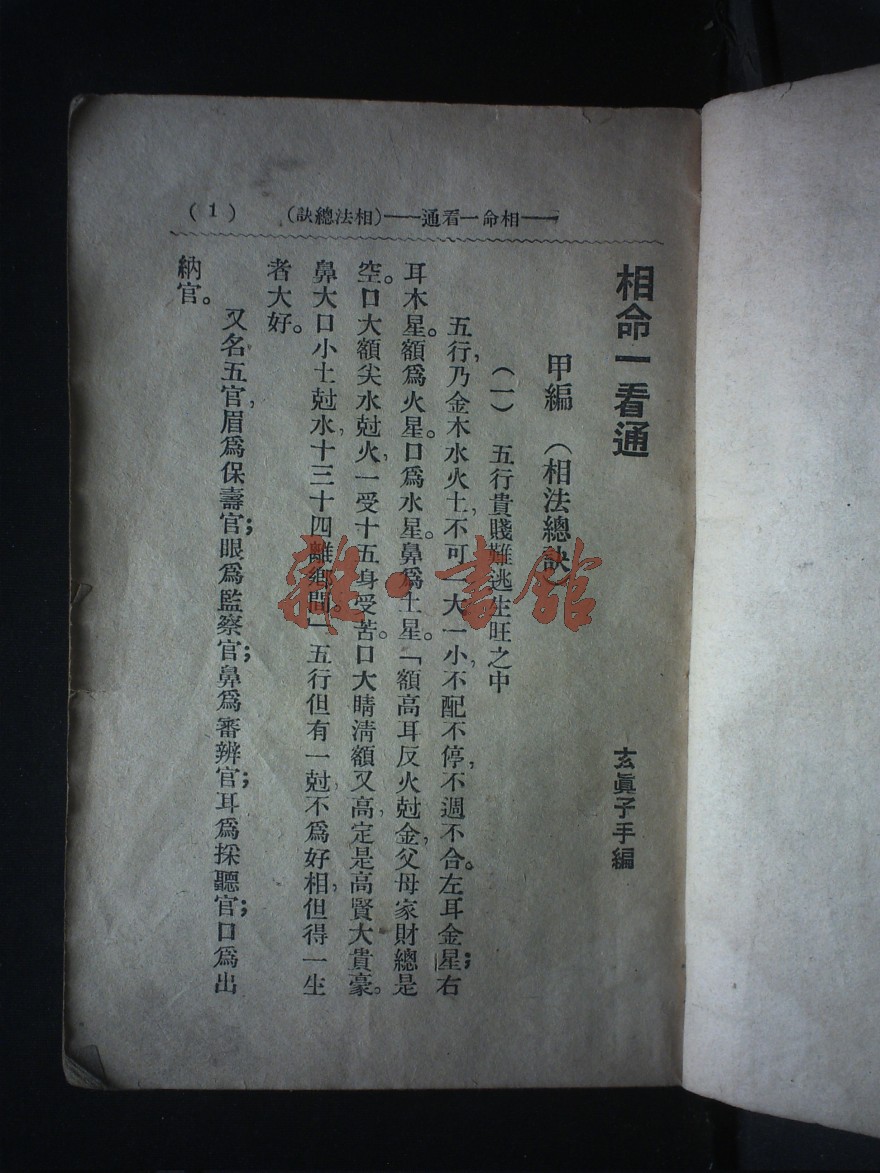 (1)　(訣總法相)——通看一命相——
相命一看通
玄眞子手編
甲編　(相法總訣)
(一)　五行貴賤難逃生旺之中
五行，乃金木水火土，不可一大一小，不配不停，不週不合。左耳金星；右
耳木星。額爲火星。口爲水星。鼻爲土星。「額高耳反火尅金，父母家財總是
空。口大額尖水尅火，一受十五身受苦。口大睛淸額又高，定是高賢大貴豪。
鼻大口小土尅水，十三十四離鄉間。」五行但有一尅，不爲好相，但得一生
者大好。
又名五官，眉爲保壽官；眼爲監察官；鼻爲審辨官；耳爲採聽官；口爲出
納官。
雜·書館